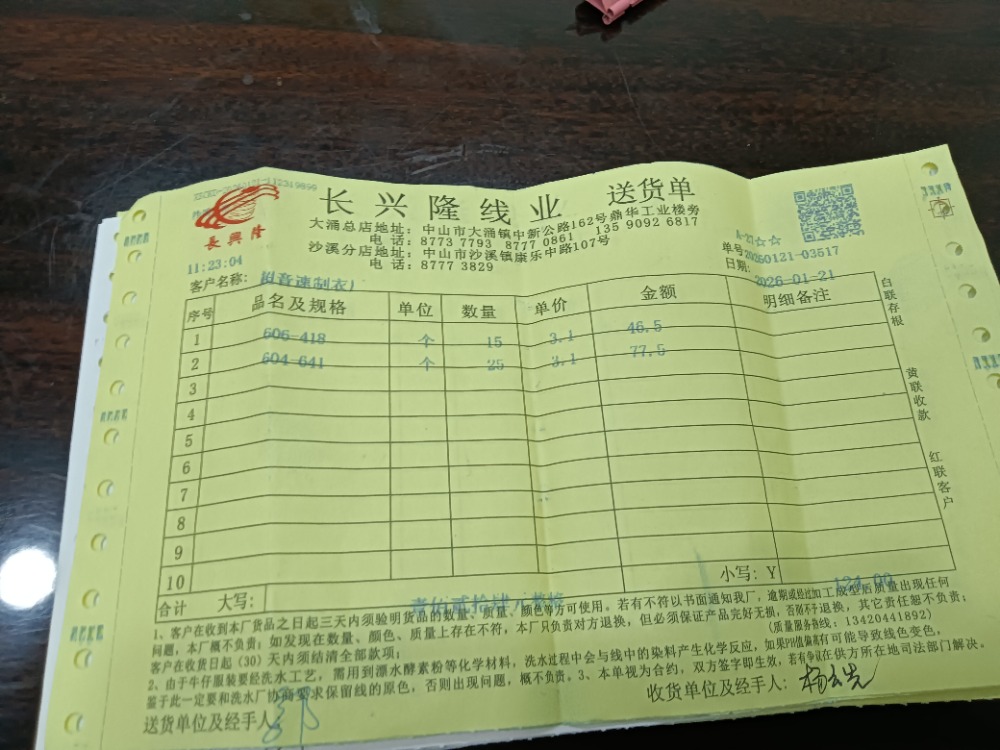 长兴隆线业 送货单
長興隆
大涌总店地址：中山市大涌镇中新公路162号鼎华工业楼旁
电话：8773 7793 8777 0861 135 9092 6817
沙溪分店地址：中山市沙溪镇康乐中路107号
电话：8777 3829
A-27☆☆
单号20260121-03517
日期：2026-01-21
11:23:04
客户名称：音速制衣厂
序号 品名及规格 单位 数量 单价 金额 明细备注
1 606-418 个 15 3.1 46.5
2 604-641 个 25 3.1 77.5
3
4
5
6
7
8
9
10
合计 大写：壹佰贰拾肆元整 小写：Y 124.00
白联存根
黄联收款
红联客户
1、客户在收到本厂货品之日起三天内须验明货品的数量、质量、颜色等方可使用。若有不符以书面通知我厂，逾期或经过加工成型后质量出现任何
问题，本厂概不负责；如发现在数量、颜色、质量上存在不符，本厂只负责对方退换，但必须保证产品完好无损，否则不予退换，其它责任恕不负责；
客户在收货日起（30）天内须结清全部款项； （质量服务热线：13420441892）
2、由于牛仔服装要经洗水工艺，需用到漂水酵素粉等化学材料，洗水过程中会与线中的染料产生化学反应，如果PH值偏高有可能导致线色变色，
鉴于此一定要和洗水厂协商要求保留线的原色，否则出现问题，概不负责。3、本单视为合约，双方签字即生效，若有争议在供方所在地司法部门解决。
送货单位及经手人： 收货单位及经手人：